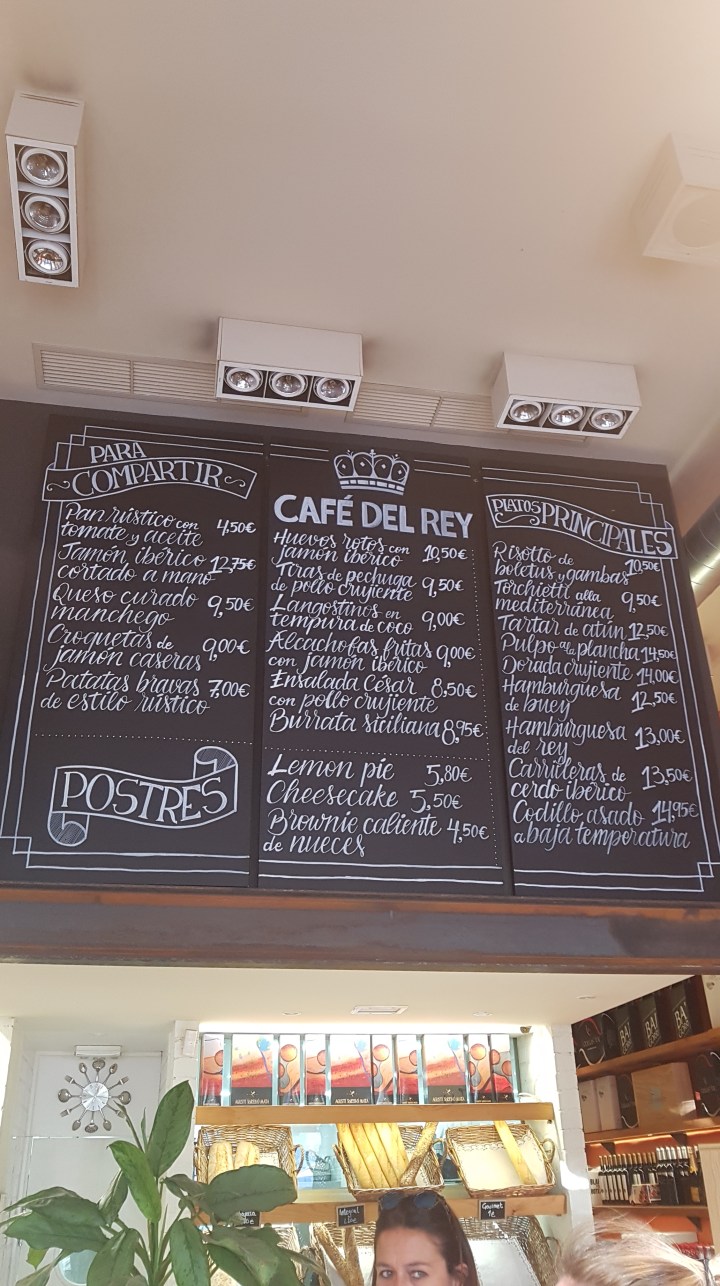 PARA
COMPARTIR
Pan rústico con
tomate y aceite 4,50€
Jamón ibérico
cortado a mano 12,75€
Queso curado
manchego 9,50€
Croquetas de
jamón caseras 9,00€
Patatas bravas 7,00€
de estilo rústico
POSTRES
CAFÉ DEL REY
Huevos rotos con
jamón ibérico 10,50€
Tiras de pechuga
de pollo crujiente 9,50€
Langostinos en
tempura de coco 9,00€
Alcachofas fritas 9,00€
con jamón ibérico
Ensalada César 8,50€
con pollo crujiente
Burrata siciliana 8,95€
Lemon pie 5,80€
Cheesecake 5,50€
Brownie caliente 4,50€
de nueces
PLATOS PRINCIPALES
Risotto de
boletus y gambas 10,50€
Torchietti alla
mediterránea 9,50€
Tartar de atún 12,50€
Pulpo a la plancha 14,50€
Dorada crujiente 14,00€
Hamburguesa
de buey 12,50€
Hamburguesa
del rey 13,00€
Carrilleras de
cerdo ibérico 13,50€
Codillo asado 14,95€
a baja temperatura
Integral
Gourmet
1€